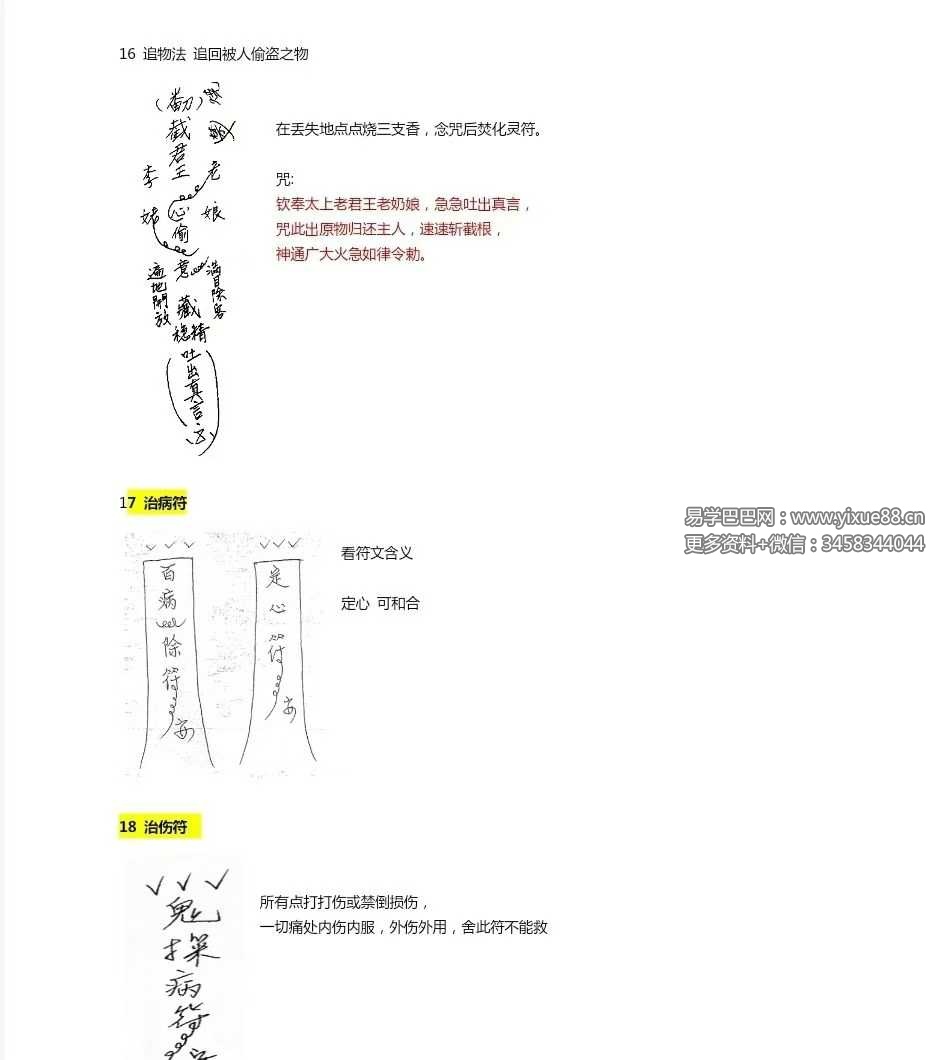 16 追物法 追回被人偷盗之物
(番刀)
截
君
王
李 老
姑 娘
心
偷
意
遍地開放
藏
稳精
吐出真言
在丢失地点点烧三支香，念咒后焚化灵符。
咒:
钦奉太上老君王老奶娘，急急吐出真言，
咒此出原物归还主人，速速斩截根，
神通广大火急如律令勅。
17 治病符
百病除符
安
定心符
安
看符文含义
定心 可和合
易学巴巴网：www.yixue88.cn
更多资料+微信：3458344044
18 治伤符
病
符
所有点打打伤或禁倒损伤，
一切痛处内伤内服，外伤外用，舍此符不能救